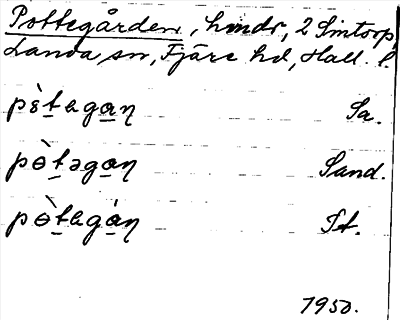 Pottegården, hmdr, 2 Simtorp,
Landa sn, Fjäre hd, Hall. l.
pètagaꞑ Sa.
pɵ̀təgaꞑ Sand.
pɵ̀tagàꞑ St.
1950.